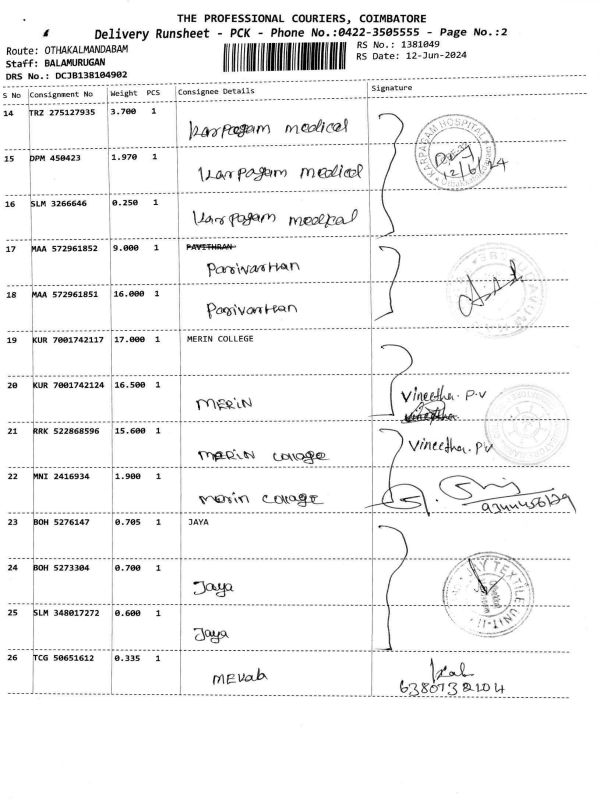 THE PROFESSIONAL COURIERS, COIMBATORE
Delivery Runsheet - PCK - Phone No.:0422-3505555 - Page No.:2
Route: OTHAKALMANDABAM
RS No.: 1381049
Staff: BALAMURUGAN
RS Date: 12-Jun-2024
DRS No.: DCJB138104902
S No Consignment No Weight PCS Consignee Details Signature
14 TRZ 275127935 3.700 1
Karpagam medical
KARPAGAM HOSPITAL
12/6/24
15 DPM 450423 1.970 1
Karpagam medical
16 SLM 3266646 0.250 1
Karpagam medical
17 MAA 572961852 9.000 1 PAVITHRAN
Parivarthan
18 MAA 572961851 16.000 1
Parivarthan
19 KUR 7001742117 17.000 1 MERIN COLLEGE
20 KUR 7001742124 16.500 1
MERIN
Vineetha. P.V
21 RRK 522868596 15.600 1
MERIN collage
Vineetha. P.V
22 MNI 2416934 1.900 1
Merin collage
23 BOH 5276147 0.705 1 JAYA
24 BOH 5273304 0.700 1
Jaya
JAY TEXTILE UNIT-II
25 SLM 348017272 0.600 1
Jaya
26 TCG 50651612 0.335 1